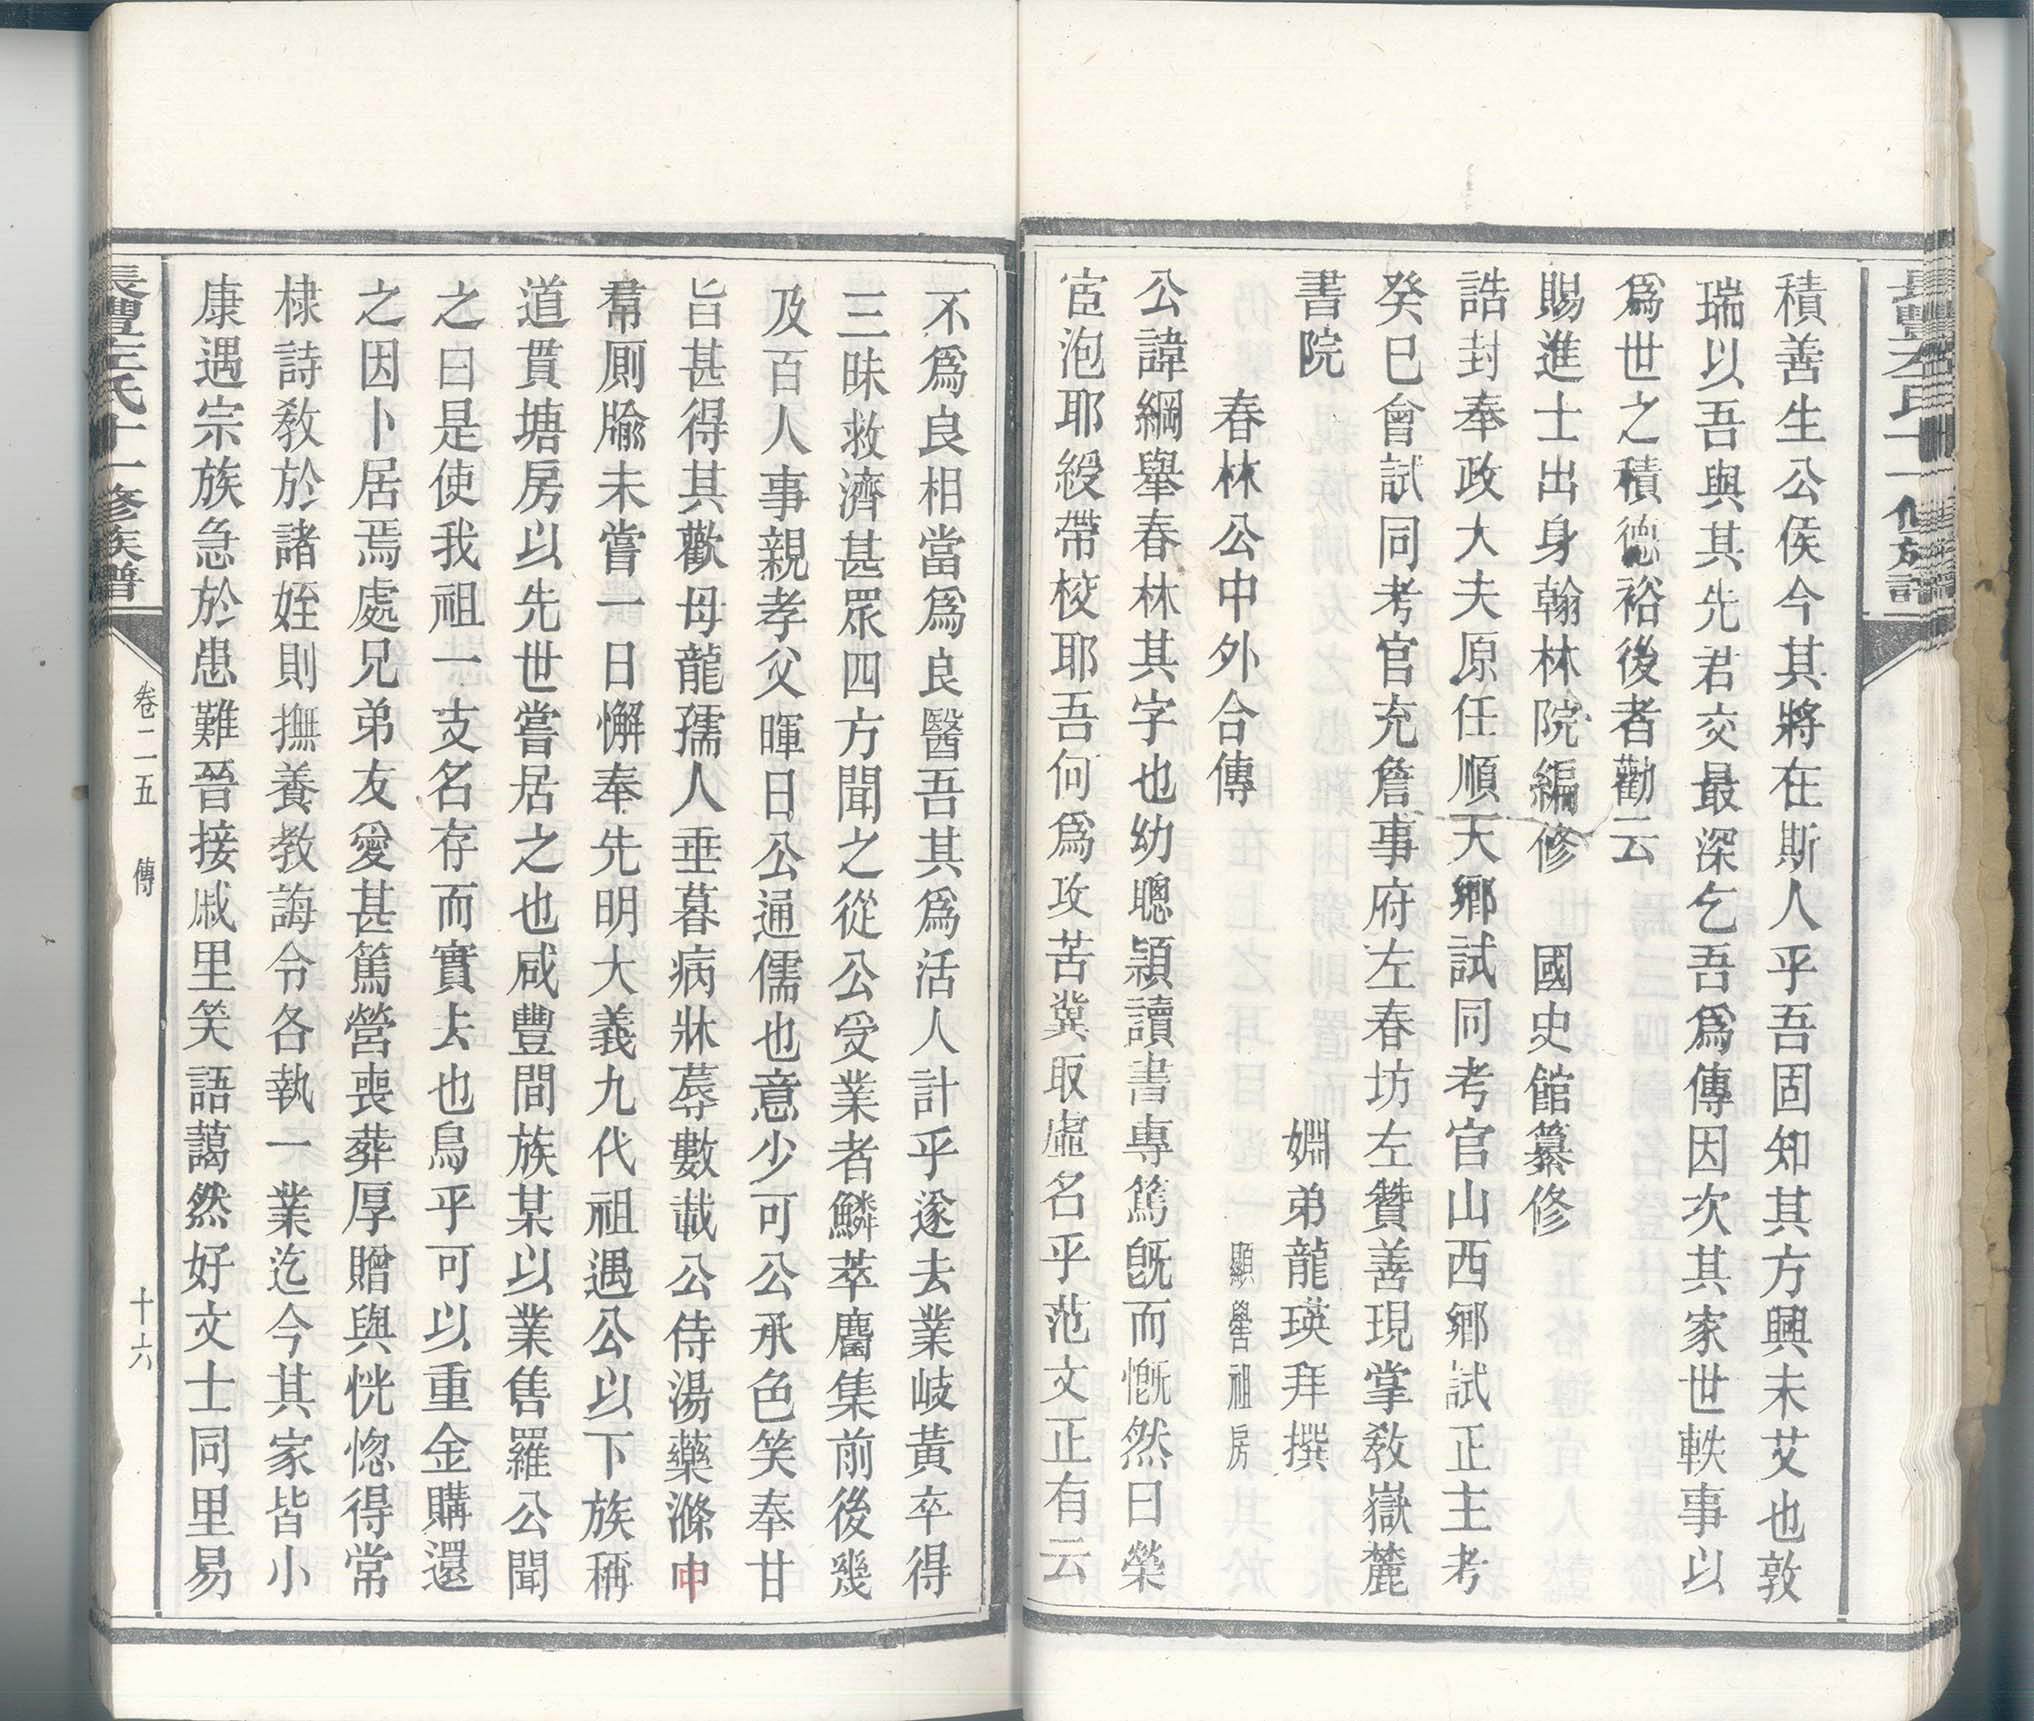 積善生公侯今其將在斯人乎吾固知其方興未艾也敦
瑞以吾與其先君交最深乞吾爲傳因次其家世軼事以
爲世之積德裕後者勸云
賜進士出身翰林院編修 國史館纂修
誥封奉政大夫原任順天鄉試同考官山西鄉試正主考
癸巳會試同考官充詹事府左春坊左贊善現掌教嶽麓
書院 姻弟龍瑛拜撰
春林公中外合傳 顯學祖房
公諱綱舉春林其字也幼聰穎讀書專篤旣而慨然曰榮
宦泡耶綬帶校耶吾何爲攻苦冀取虛名乎范文正有云
不爲良相當爲良醫吾其爲活人計乎遂去業岐黃卒得
三昧救濟甚眾四方聞之從公受業者鱗萃麕集前後幾
及百人事親孝父暉日公通儒也意少可公承色笑奉甘
旨甚得其歡母龍孺人垂暮病牀蓐數載公侍湯藥滌中
帬厠牏未嘗一日懈奉先明大義九代祖遇公以下族稱
道貫塘房以先世嘗居之也咸豐間族某以業售羅公聞
之曰是使我祖一支名存而實去也烏乎可以重金購還
之因卜居焉處兄弟友愛甚篤營喪葬厚贈與恍惚得常
棣詩教於諸姪則撫養教誨令各執一業迄今其家皆小
康遇宗族急於患難晉接戚里笑語藹然好文士同里易
長豐李氏十一修族譜
卷二五 傳
十六